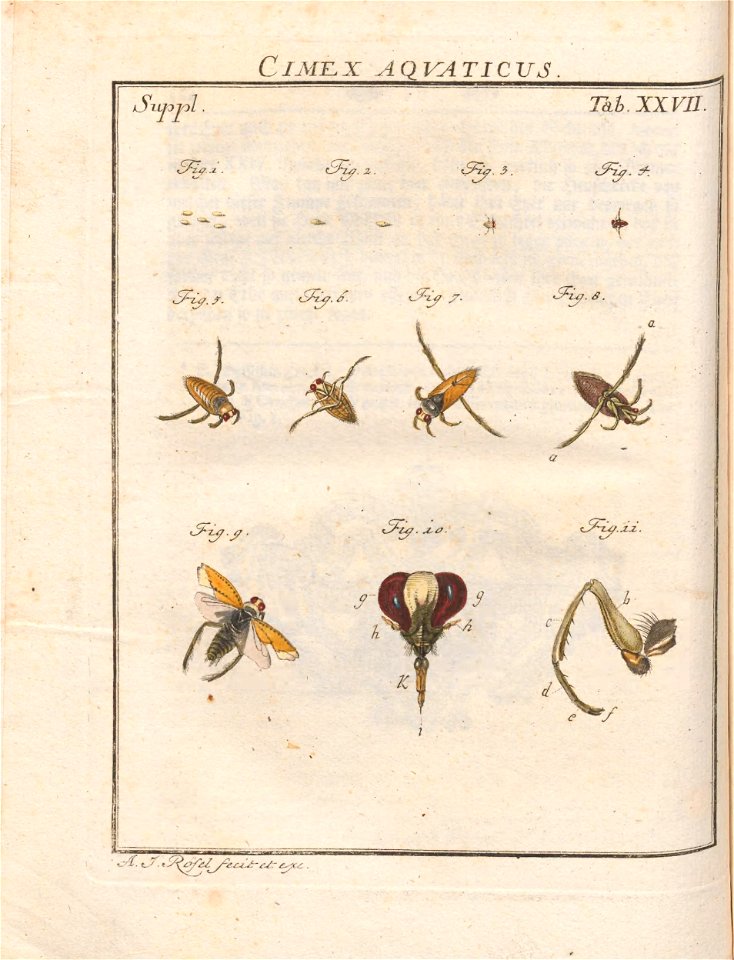 CIMEX AQVATICUS.
Suppl. Tab. XXVII.
Fig. 1. Fig. 2. Fig. 3. Fig. 4.
Fig. 5. Fig. 6. Fig 7. Fig. 8.
a
a
Fig. 9. Fig. 10. Fig. 11.
g g b
h h c
K d
i e f
A. J. Rosel fecit et exc.